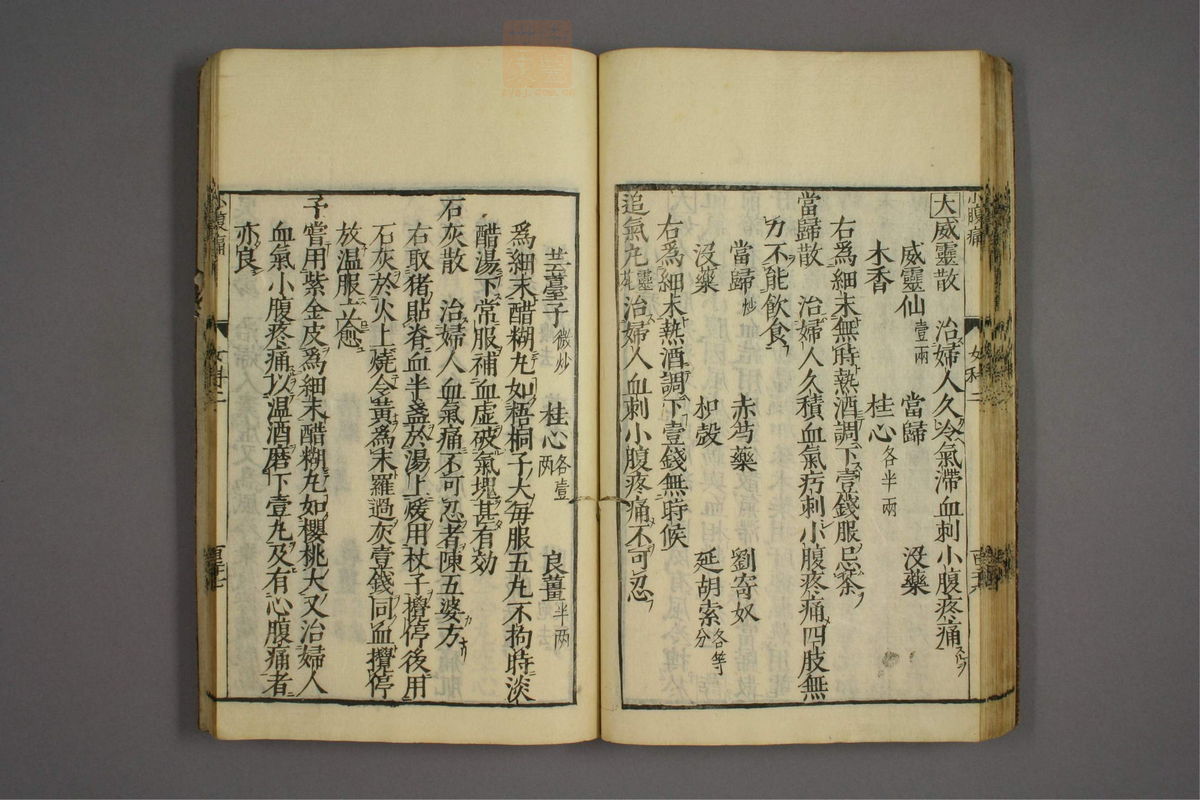 小腹痛
女科二
大威靈散　治婦人久冷氣滯血刺小腹疼痛
威靈仙壹兩　當歸　沒藥
木香　桂心各半兩
右爲細末無時熱酒調下壹錢服忌茶
當歸散　治婦人久積血氣疠刺小腹疼痛四肢無
力不能飲食
當歸炒　赤芍藥　劉寄奴
沒藥　枳殼　延胡索各等分
右爲細末熱酒調下壹錢無時候
追氣丸靈苑治婦人血刺小腹疼痛不可忍
芸薹子微炒　桂心各壹兩　良薑半兩
爲細末醋糊丸如梧桐子大每服五丸不拘時淡
醋湯下常服補血虛破氣塊甚有効
石灰散　治婦人血氣痛不可忍者陳五婆方
右取猪貼脊血半盞於湯上煖用杖子攪停後用
石灰於火上燒令黃爲末羅過灰壹錢同血攪停
放温服立愈
予嘗用紫金皮爲細末醋糊丸如櫻桃大又治婦人
血氣小腹疼痛以温酒磨下壹丸及有心腹痛者
亦良
小腹痛
女科二